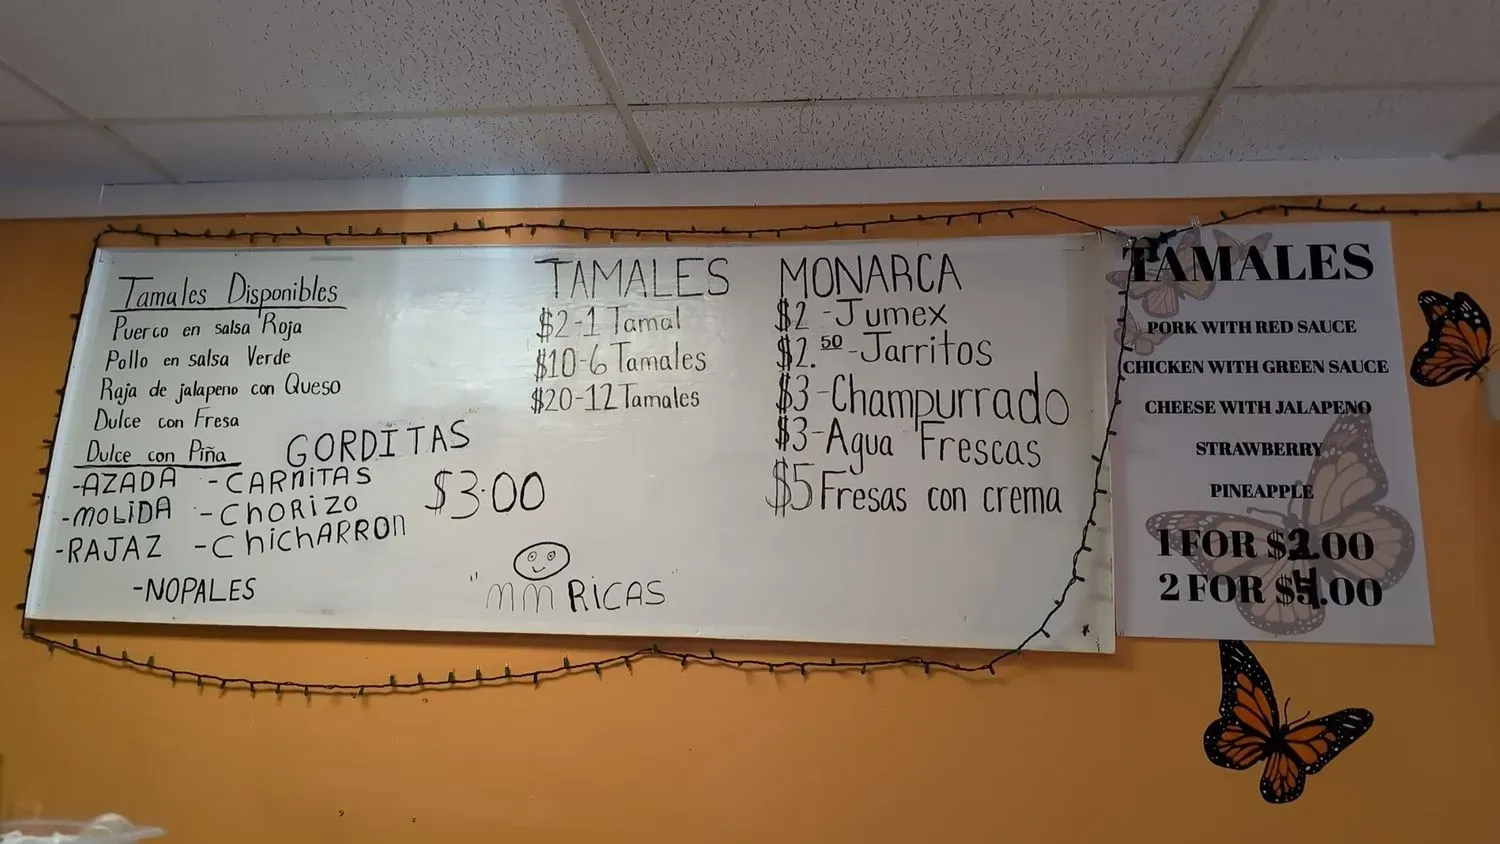 Tamales Disponibles
Puerco en salsa Roja
Pollo en salsa Verde
Raja de jalapeno con Queso
Dulce con Fresa
Dulce con Piña
GORDITAS
$3.00
-AZADA -CARNITAS
-MOLIDA -CHORIZO
-RAJAZ -CHICHARRON
-NOPALES
"MM RICAS"
TAMALES MONARCA
$2-1 Tamal
$10-6 Tamales
$20-12 Tamales
$2-Jumex
$2.50-Jarritos
$3-Champurrado
$3-Agua Frescas
$5 Fresas con crema
TAMALES
PORK WITH RED SAUCE
CHICKEN WITH GREEN SAUCE
CHEESE WITH JALAPENO
STRAWBERRY
PINEAPPLE
1 FOR $2.00
2 FOR $4.00